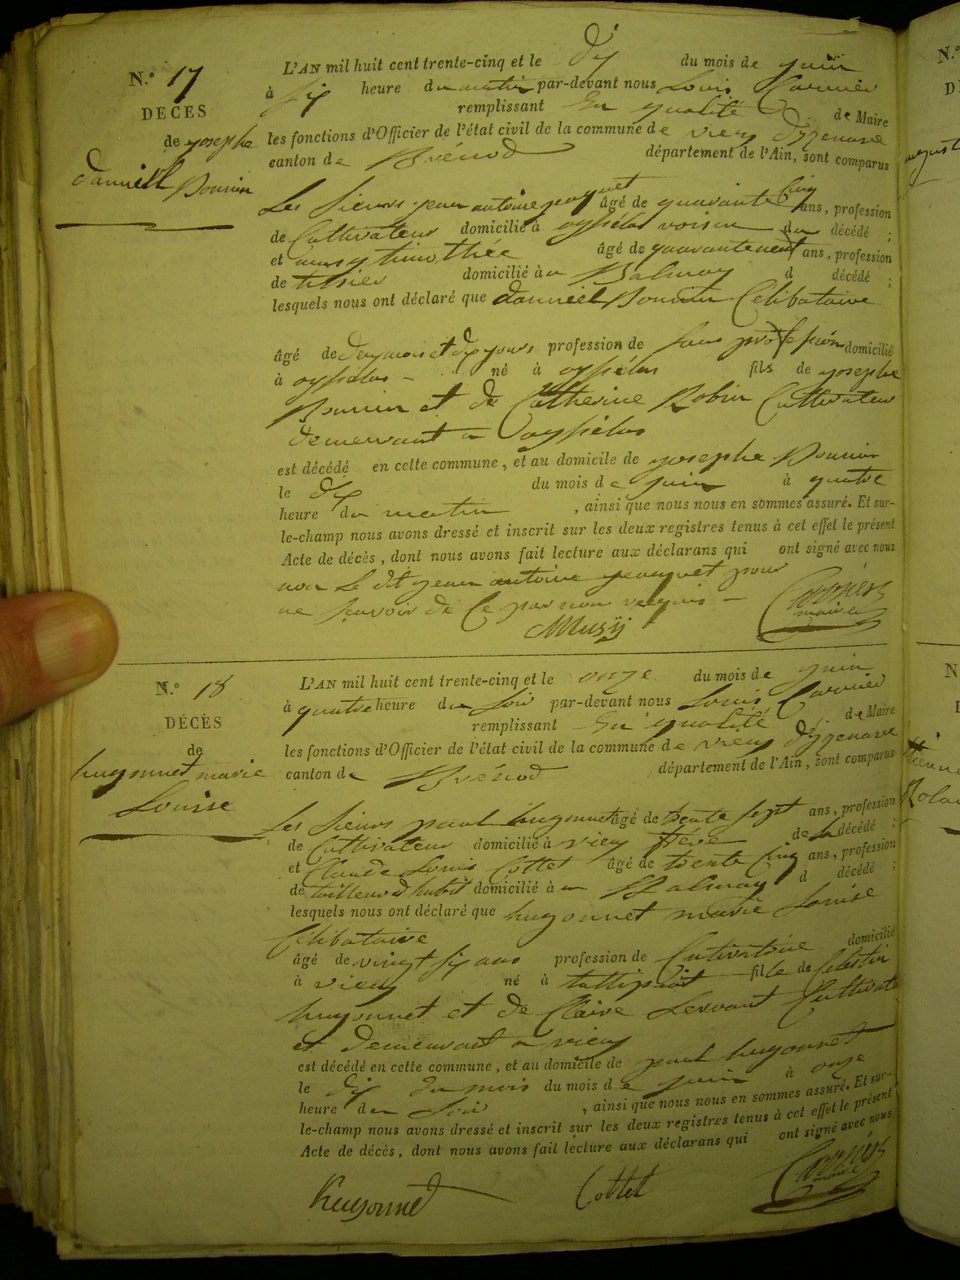 N.° 17
DÉCÈS
de josephe
danniell Bonnin
L'AN mil huit cent trente-cinq et le dix du mois de juin
à six heure du matin par-devant nous Louis Carrier
remplissant en qualité de Maire
les fonctions d'Officier de l'état civil de la commune de vieu d'yzenave
canton de Brénod département de l'Ain, sont comparus
Les sieurs jean antoine jeanquet âgé de quarante cinq ans, profession
de Cultivateur domicilié à oysselas voisin du décédé ;
et thimothée âgé de quarante neuf ans, profession
de tissier domicilié à au Balmay d décédé ;
lesquels nous ont déclaré que danniell Bonnin Célibataire
âgé de deux mois et dix jours profession de sans profession domicilié
à oysselas né à oysselas fils de josephe
Bonnin et de Catherine Robin Cultivateur
demeurant a oysselas
est décédé en cette commune, et au domicile de josephe Bonnin
le dix du mois de juin à quatre
heure du matin , ainsi que nous nous en sommes assuré. Et sur-
le-champ nous avons dressé et inscrit sur les deux registres tenus à cet effet le présent
Acte de décès, dont nous avons fait lecture aux déclarans qui ont signé avec nous
non Le dit jean antoine jeanquet pour
ne savoir de Ce par nous requis
Muzy
Carrier
maire
N.° 18
DÉCÈS
de
hugonnet marie
Louise
L'AN mil huit cent trente-cinq et le onze du mois de juin
à quatre heure du soir par-devant nous Louis Carrier
remplissant en qualité de Maire
les fonctions d'Officier de l'état civil de la commune de vieu d'yzenave
canton de Brénod département de l'Ain, sont comparus
Les sieurs paul hugonnet âgé de trente sept ans, profession
de Cultivateur domicilié à vieu frère de la décédé ;
et Claude Louis Cottet âgé de trente cinq ans, profession
de tailleur d'habit domicilié à au Balmay d décédé ;
lesquels nous ont déclaré que hugonnet marie Louise
Célibataire
âgé de vingt six ans profession de Cultivatrice domicilié
à vieu né à fille de Célestin
hugonnet et de Claire Servant Cultivate
et demeurant a vieu
est décédé en cette commune, et au domicile de paul hugonnet
le dix du mois du mois de juin à onze
heure du soir , ainsi que nous nous en sommes assuré. Et sur-
le-champ nous avons dressé et inscrit sur les deux registres tenus à cet effet le présent
Acte de décès, dont nous avons fait lecture aux déclarans qui ont signé avec nous
Hugonnet
Cottet
Carrier
maire